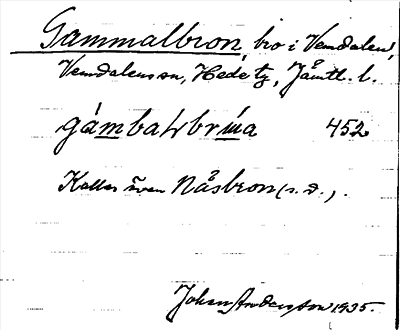 Gammalbron, bro i Vemdalen,
Vemdalens sn, Hede tg, Jämtl. l.
gámbaɫbrúa 452
Kallas även Nåsbron (s. d.).
Johan Andersson 1935.